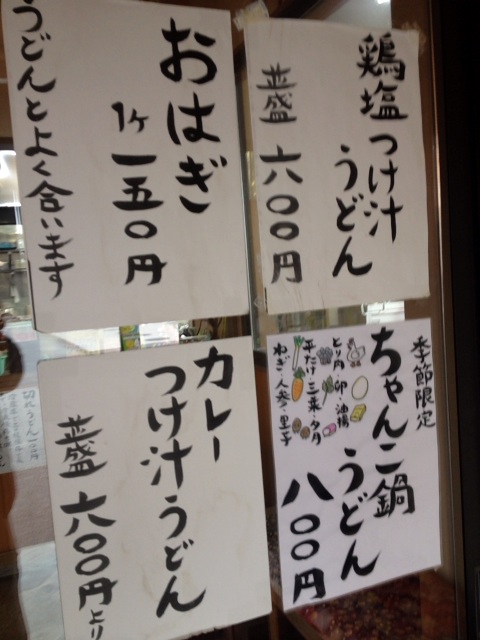 おはぎ
1ヶ 一五〇円
うどんとよく合います
鶏塩つけ汁
うどん
並盛 六〇〇円
カレー
つけ汁うどん
並盛 六〇〇円より
季節限定
ちゃんこ鍋
うどん
八〇〇円
とり肉・卵・油揚
ねぎ・人参・里子